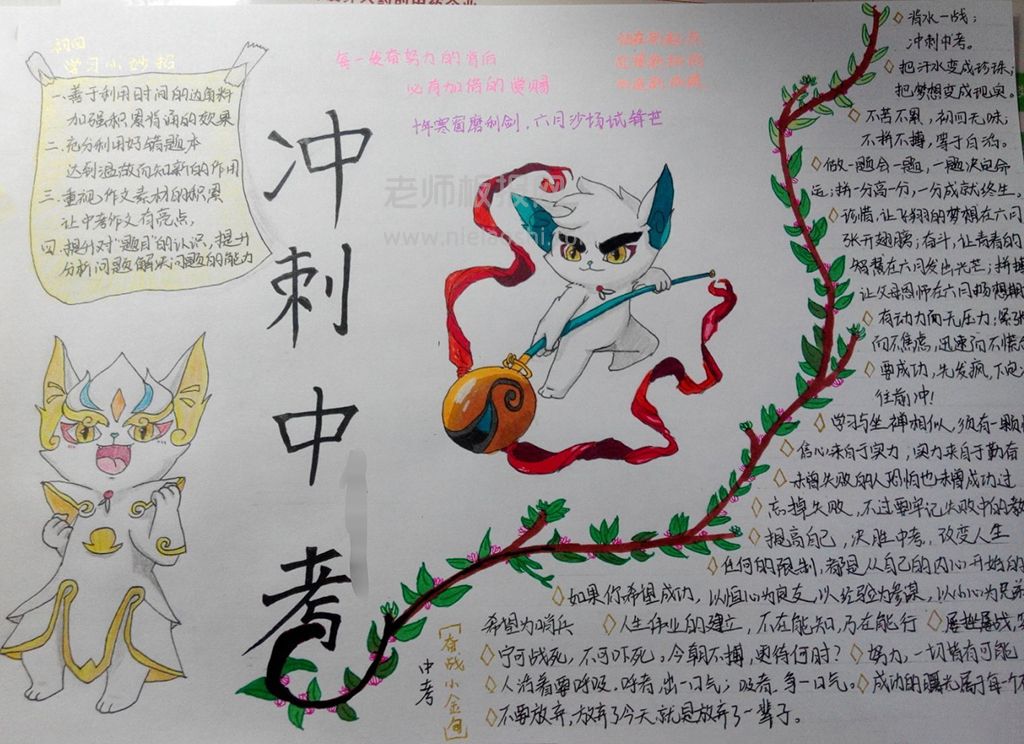 初四
学习小妙招
一.善于利用时间的边角料
加强积累背诵的效果
二.充分利用好错题本
达到温故而知新的作用
三.重视作文素材的积累
让中考作文有亮点,
四.提升对“题目”的认识,提升
分析问题解决问题的能力
每一发奋努力的背后
必有加倍的赏赐
十年寒窗磨利剑,六月沙场试锋芒
冲刺中考
老师板报网
www.nielaoshi.cn
◇背水一战;
冲刺中考。
◇把汗水变成珍珠;
把梦想变成现实。
◇不苦不累,初四无味;
不拼不搏,等于白活。
◇做一题会一题,一题决定命
运;拼一分高一分,一分成就终生。
◇珍惜,让飞翔的梦想在六月
张开翅膀;奋斗,让青春的
智慧在六月发出光芒;拼搏
让父母恩师在六月畅想
◇有动力而无压力;紧张
而不焦虑,迅速而不慌
◇要成功,先发疯,下定
往前冲!
◇学习与坐禅相似,须有一颗
◇信心来自于实力,实力来自于勤奋
◇未曾失败的人恐怕也未曾成功过
◇忘掉失败,不过要牢记失败中的教
◇提高自己,决胜中考,改变人生
◇任何的限制,都是从自己的内心开始的
◇如果你希望成功,以恒心为良友,以经验为参谋,以小心为兄弟
希望为哨兵 ◇人生伟业的建立,不在能知,乃在能行 ◇屡挫屡战
◇宁可战死,不可吓死,今朝不搏,更待何时? ◇努力,一切皆有可能
◇人活着要呼吸.呼者,出一口气;吸者,争一口气。◇成功的曙光属于每个
◇不要放弃,放弃了今天.就是放弃了一辈子。
[奋战小金句]
中考